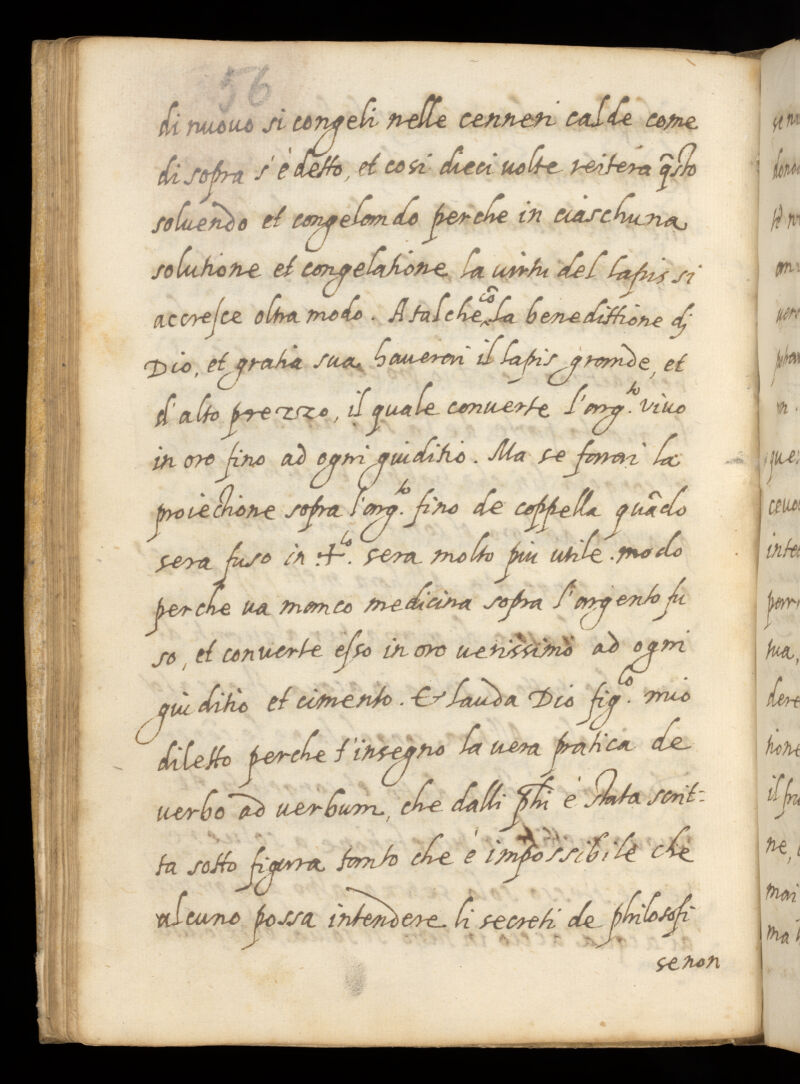 56
di nuovo si congeli nelle cenneri calde come
di sopra s'è detto, et cosi dieci volte reitera q̃sto
soluendo et congelando perche in ciaschuna
solutione et congelatione la uirtu del lapis si
accresce oltra modo. A tal che cõ la benedittione dj
Dio, et gratia sua haverai il lapis grande, et
d'alto prezzo, il quale converte l'arg.to vivo
in oro fino ad ogni guiditio. Ma se farai la
proiectione sopra l'arg.to fino de coppella quãdo
sera fuso in .+.lo sera molto piu utile. modo
perche va manco medicina sopra l'argento fu
so, et converte esso in oro verissimo ad ogni
guiditio et cimento. Et lauda Dio fig.lo mio
diletto perche t'insegno la vera pratica de
verbo ad verbum, che dalli phi è stata scrit=
ta sotto figura tanto che è impossibile che
alcuno possa intendere li secreti de philosofi
se non